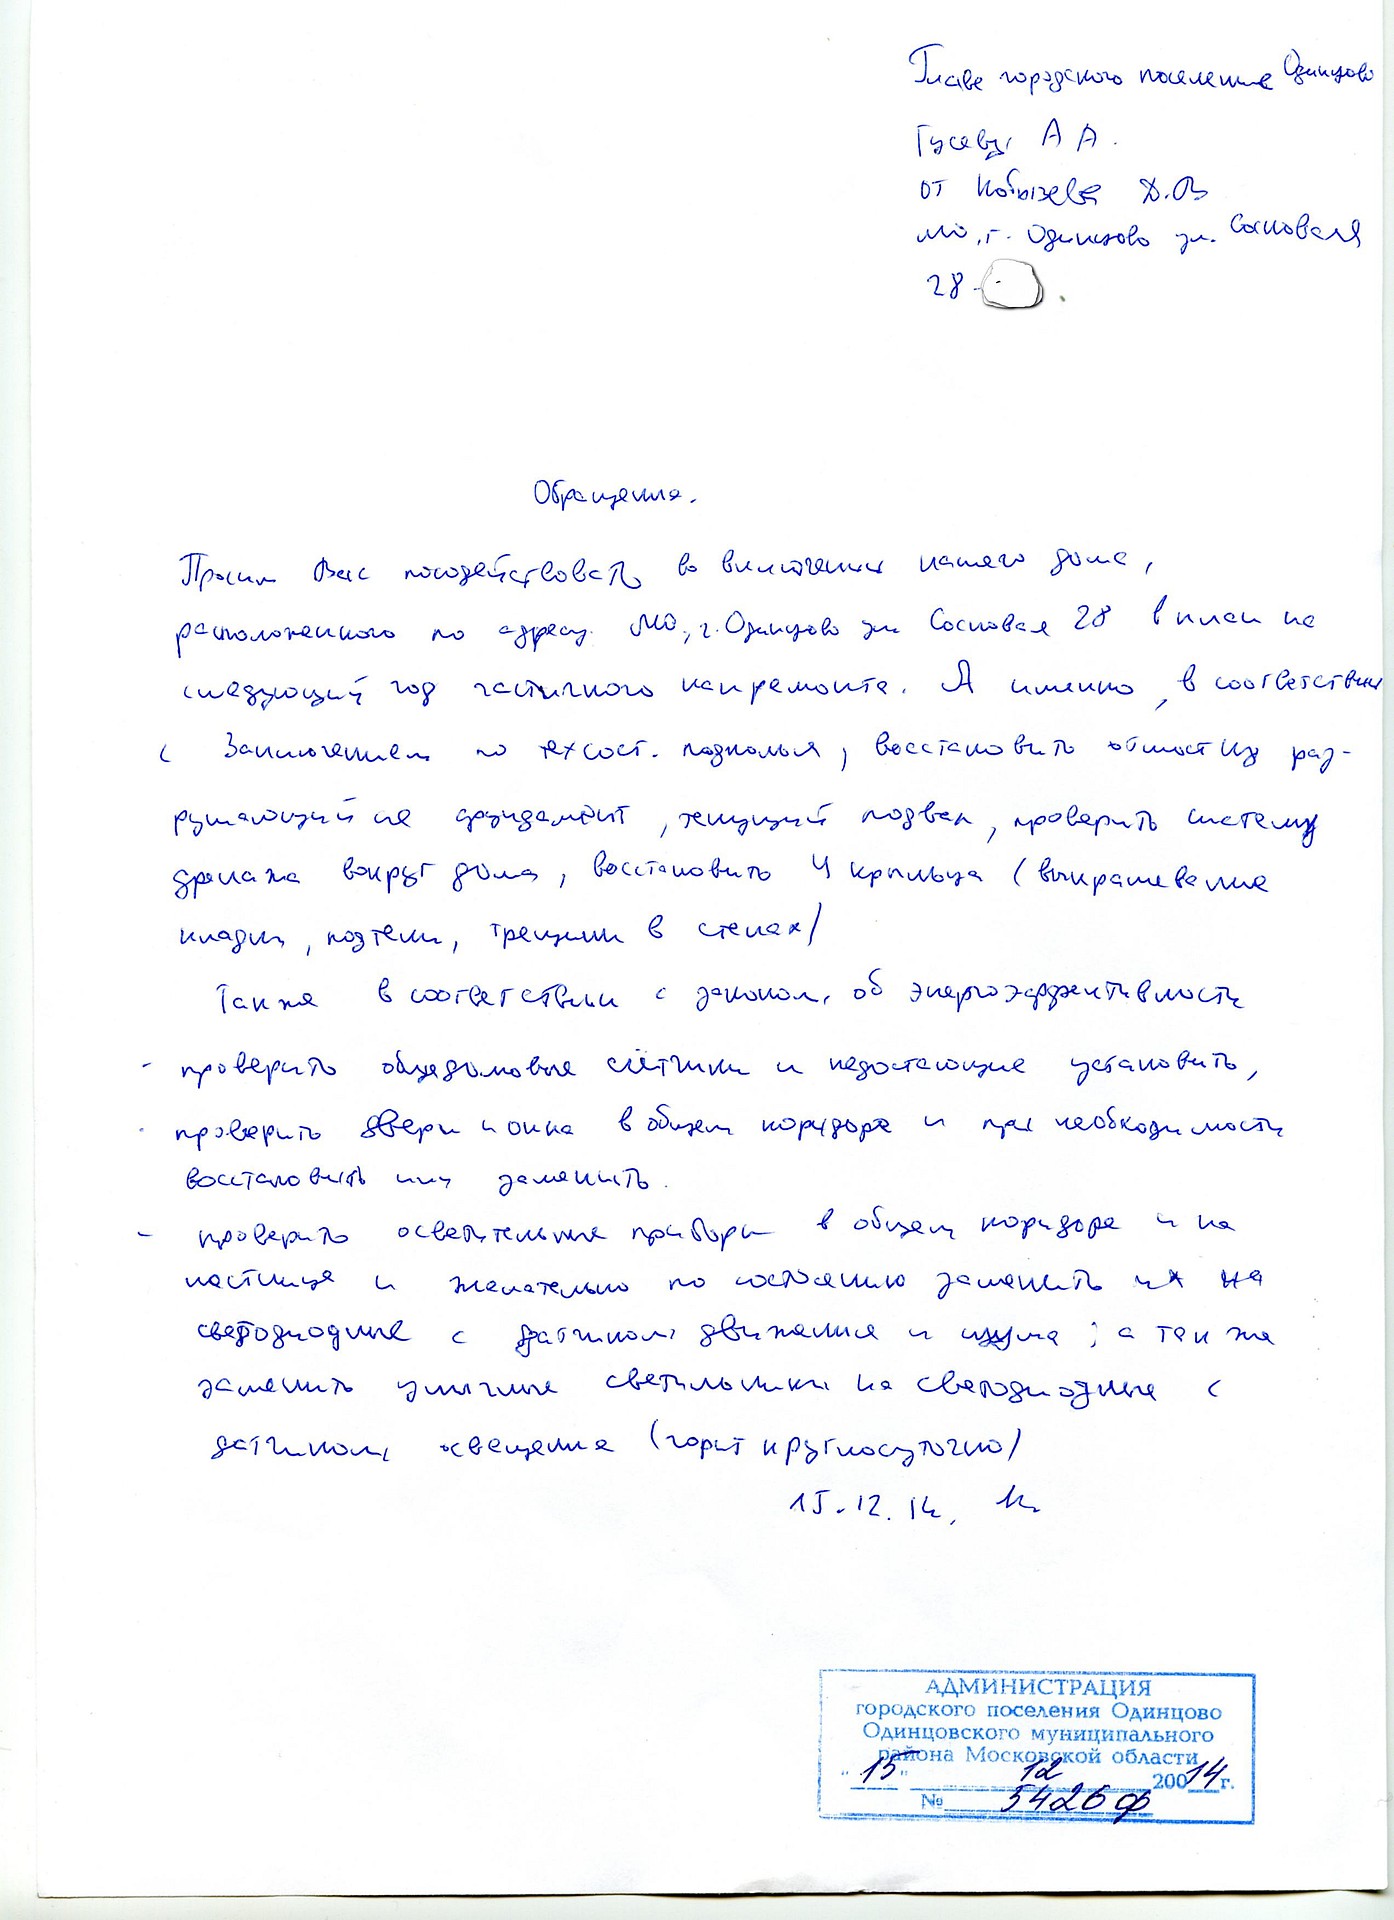 Главе городского поселения Одинцово
Гусеву А А.
от Кобызева Д.В
МО, г. Одинцово ул. Сосновая
28 -
Обращение.
Просим Вас посодействовать во включении нашего дома,
расположенного по адресу МО, г. Одинцово ул Сосновая 28 в план на
следующий год частичного капремонта. А именно, в соответствии
с Заключением по техсост. подполья, восстановить отмостку раз-
рушающийся фундамент, текущий подвал, проверить систему
дренажа вокруг дома, восстановить 4 крыльца (выкрашевание
кладки, подтеки, трещины в стенах/
Также в соответствии с законом об энергоэффективности
- проверить общедомовые счётчики и недостающие установить,
- проверить двери и окна в общем коридоре и при необходимости
восстановить или заменить.
- проверить осветительные приборы в общем коридоре и на
лестнице и желательно по состоянию заменить их на
светодиодные с датчиком движения и шума; а так же
заменить уличные светильники на светодиодные с
датчиком освещения (горят круглосуточно/
15.12.14.
АДМИНИСТРАЦИЯ
городского поселения Одинцово
Одинцовского муниципального
района Московской области
"15" 12 20014г.
№ 5426ф